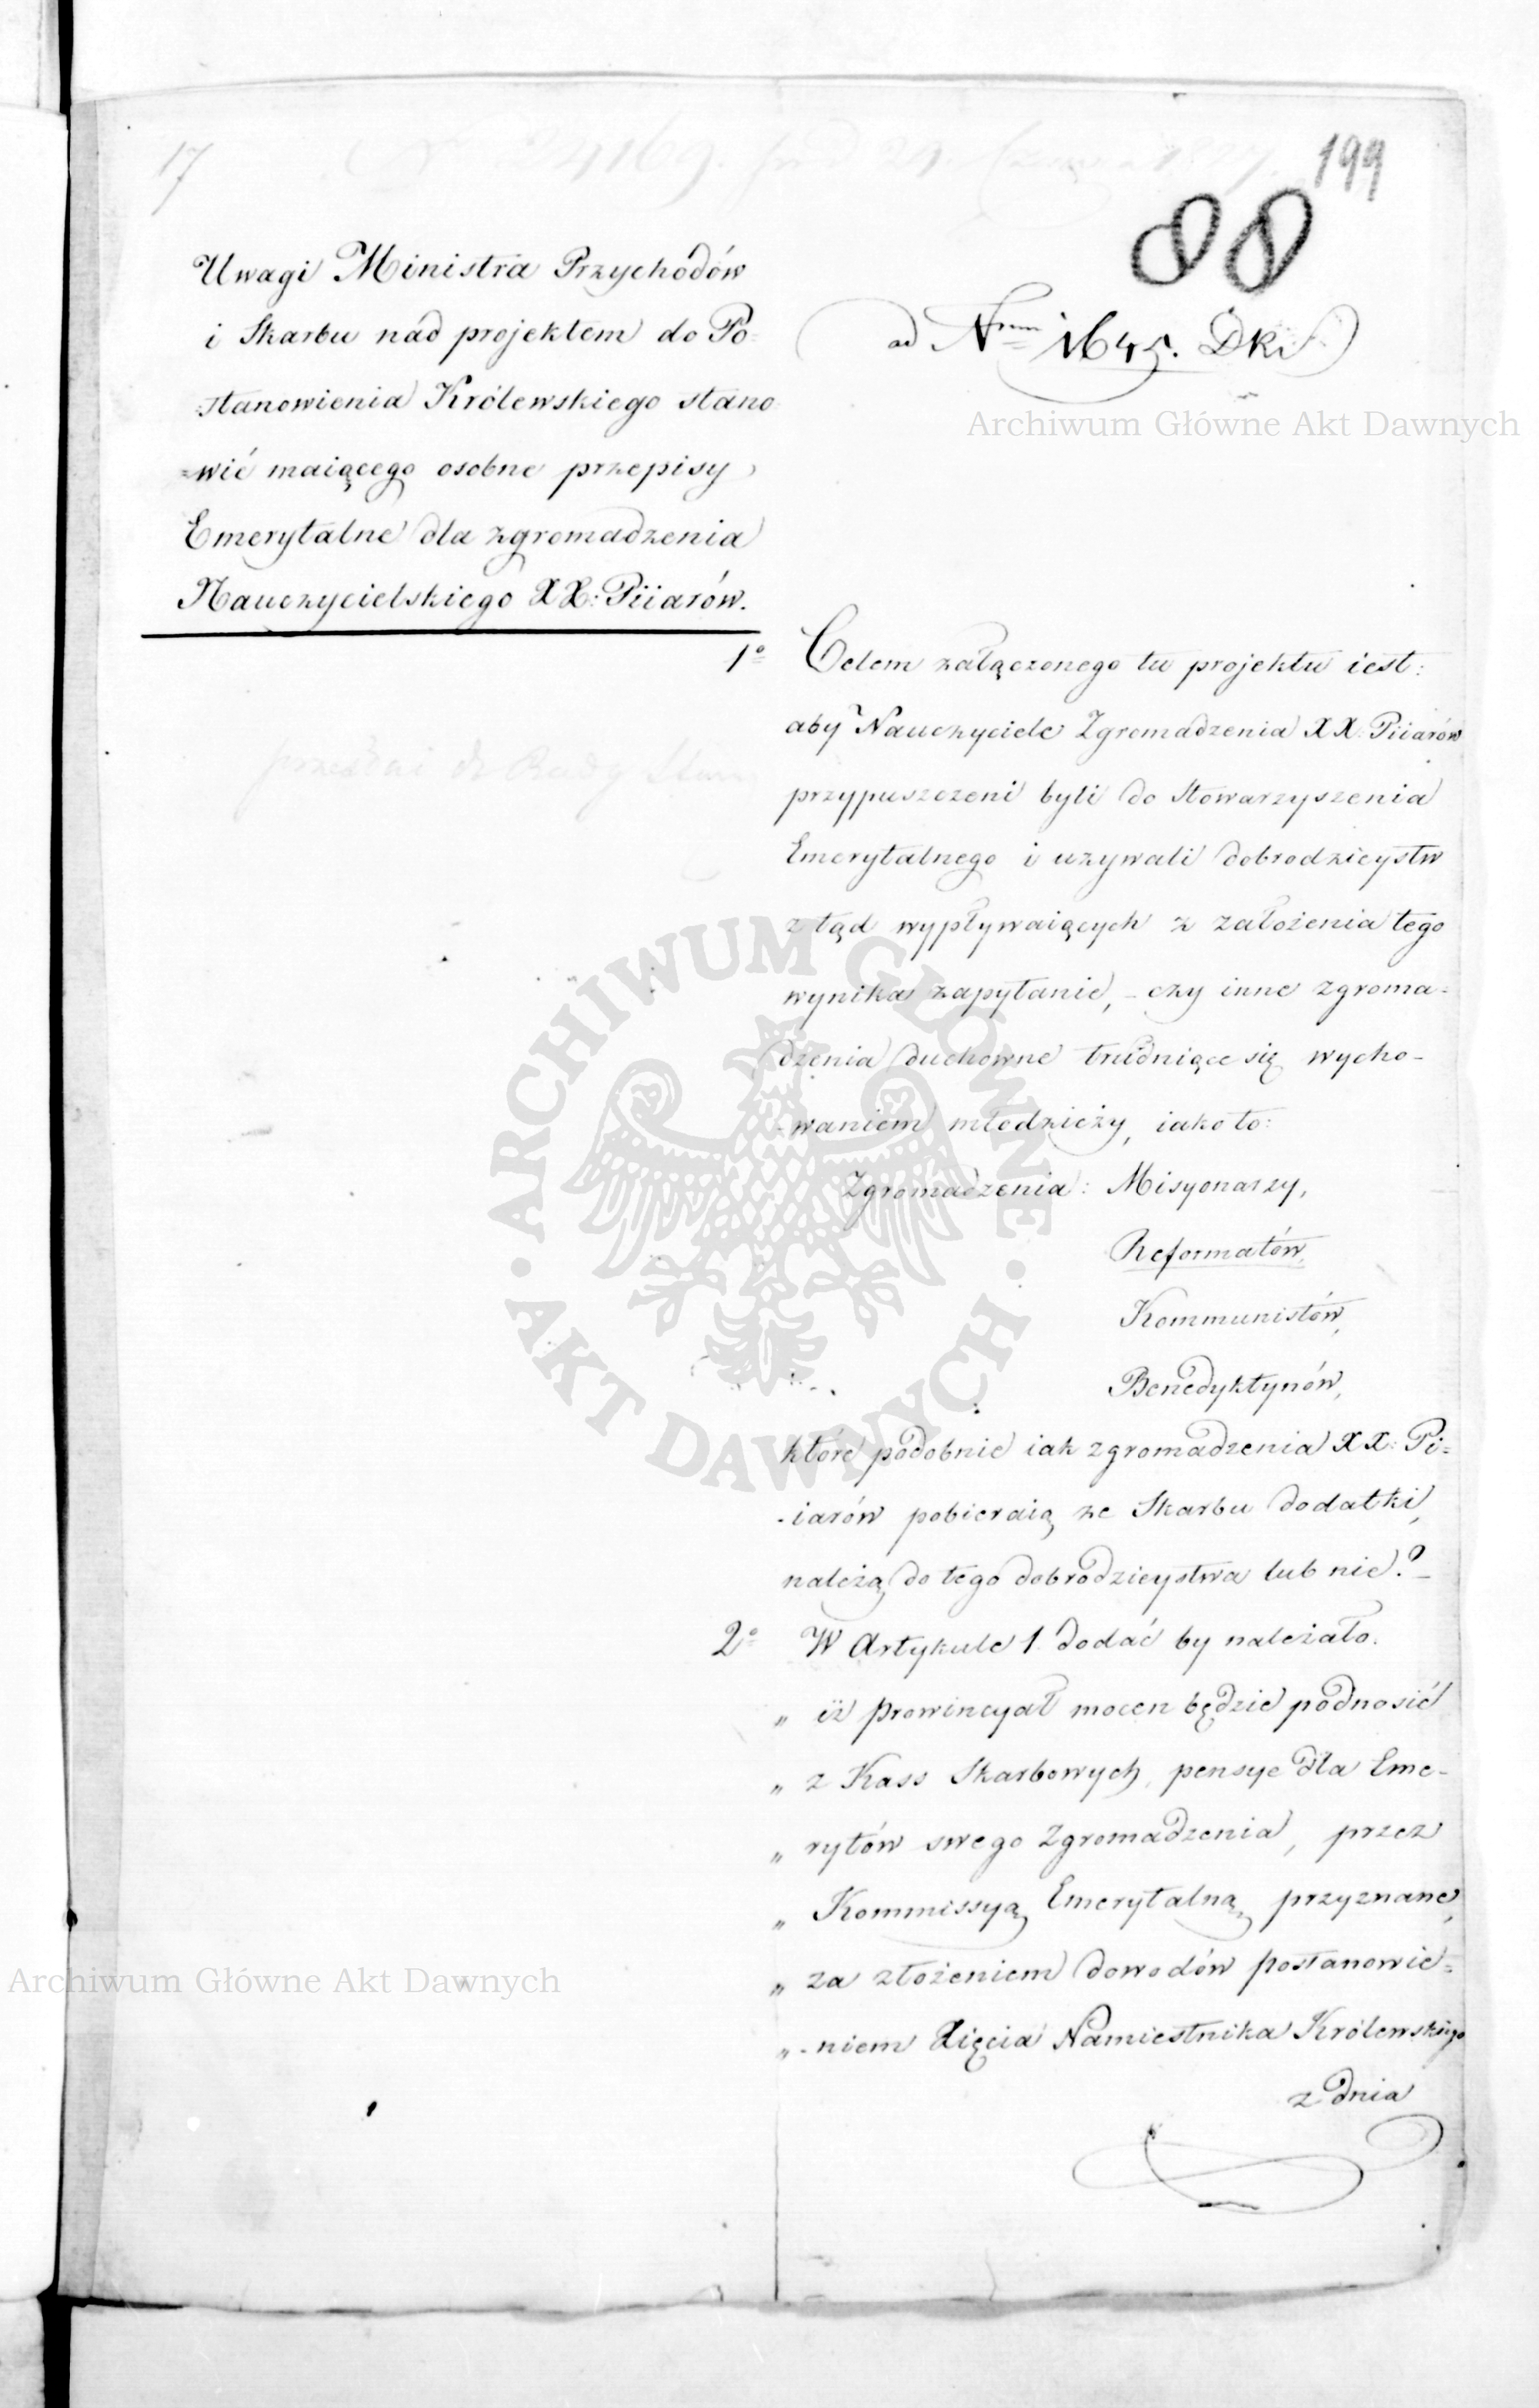 17
199
88
Uwagi Ministra Przychodów
i Skarbu nad projektem do Po-
stanowienia Królewskiego stano
=wić maiącego osobne przepisy
Emerytalne dla zgromadzenia
Nauczycielskiego XX: Piiarów.
ad Nrum 1645. Dki
Archiwum Główne Akt Dawnych
1o Celem załączonego tu projektu iest:
aby Nauczyciele Zgromadzenia XX. Piiarów
przypuszczeni byli do Stowarzyszenia
Emerytalnego i używali dobrodzieystw
ztąd wypływaiących z założenia tego
wynika zapytanie, - czy inne zgroma-
dzenia duchowne trudniące się wycho-
-waniem młodzieży, iako to:
Zgromadzenia: Misyonarzy,
Reformatów,
Kommunistów,
Benedyktynów,
które podobnie iak zgromadzenia XX: Pi=
-iarów pobieraią ze Skarbu dodatki,
należą do tego dobrodzieystwa lub nie?-
2o W Artykule 1. dodać by należało.
„ iż Prowincyał mocen będzie podnosić
„ z Kass Skarbowych, pensye dla Eme-
„ rytów swego Zgromadzenia, przez
„ Kommissyą Emerytalną przyznane,
„ za złożeniem dowodów postanowie=
„ -niem Xięcia Namiestnika Królewskiego
z dnia
ARCHIWUM GŁÓWNE · AKT DAWNYCH ·
Archiwum Główne Akt Dawnych